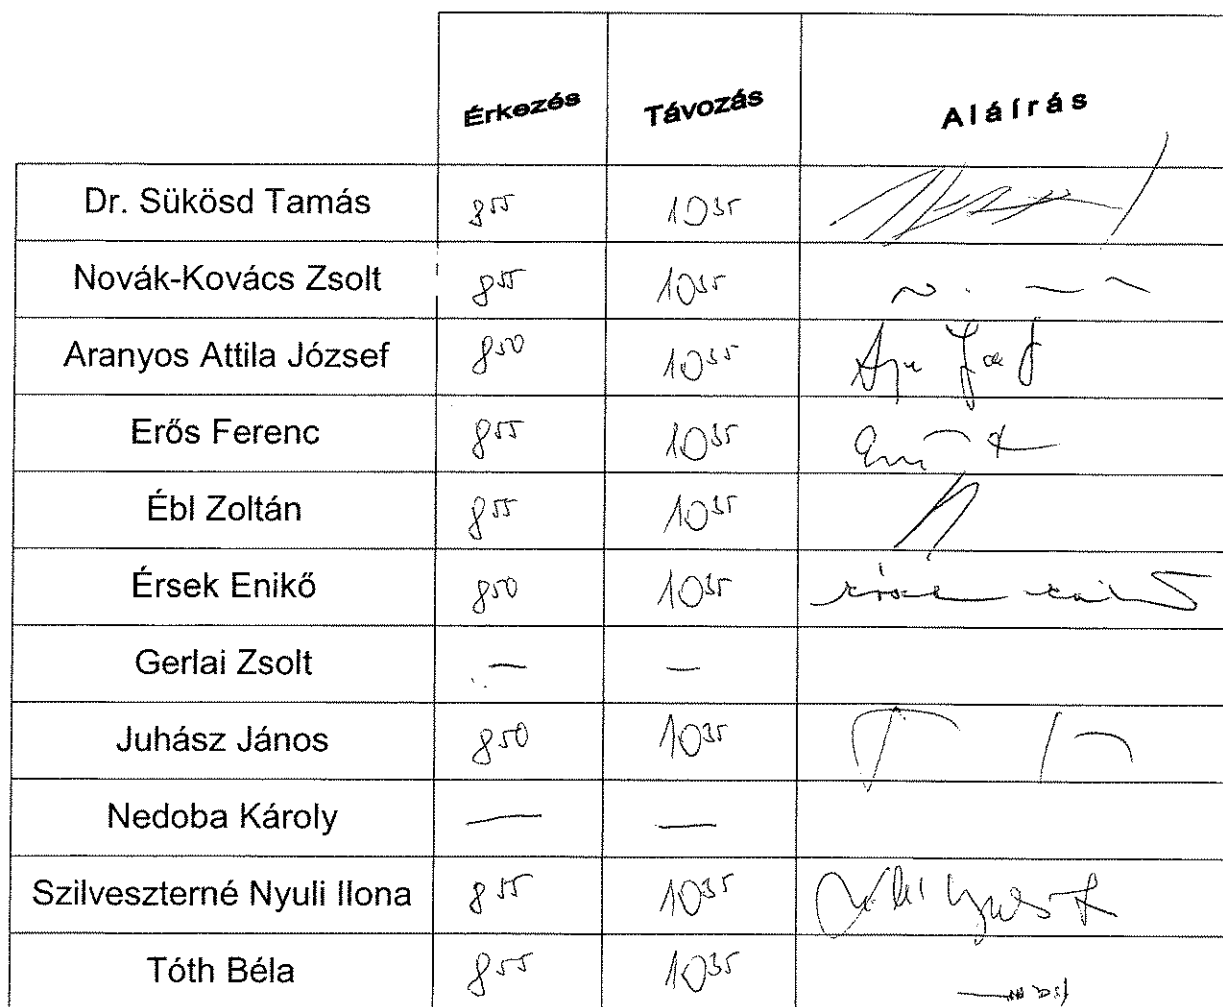 Érkezés Távozás Aláírás
Dr. Sükösd Tamás 8⁵⁵ 10³⁵
Novák-Kovács Zsolt 8⁵⁵ 10³⁵
Aranyos Attila József 8⁵⁰ 10³⁵
Erős Ferenc 8⁵⁵ 10³⁵
Ébl Zoltán 8⁵⁵ 10³⁵
Érsek Enikő 8⁵⁰ 10³⁵ Érsek Enikő
Gerlai Zsolt — —
Juhász János 8⁵⁰ 10³⁵
Nedoba Károly — —
Szilveszterné Nyuli Ilona 8⁵⁵ 10³⁵
Tóth Béla 8⁵⁵ 10³⁵